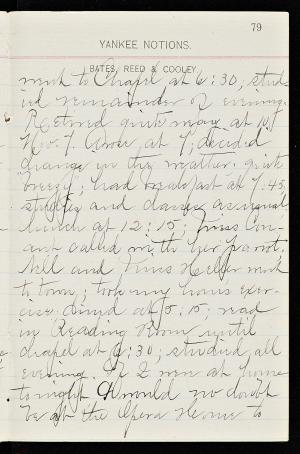 79
YANKEE NOTIONS.
BATES, REED & COOLEY.
went to Chapel at 6:30; stud-
ied remainder of evening.
Retired quick may at 10.
Nov. 7. Arose at 7; decided
change in the weather, quite
breezy; had breakfast at 7:45,
studies and classes as usual
lunch at 12:15; Miss Con-
ant called with her parrot;
Nell and Miss went
to town; took my hour's exer-
cise; dined at 5:15; read
in Reading Room until
chapel at 6:30; studied all
evening. If I were at home
tonight I would no doubt
be at the Opera House to